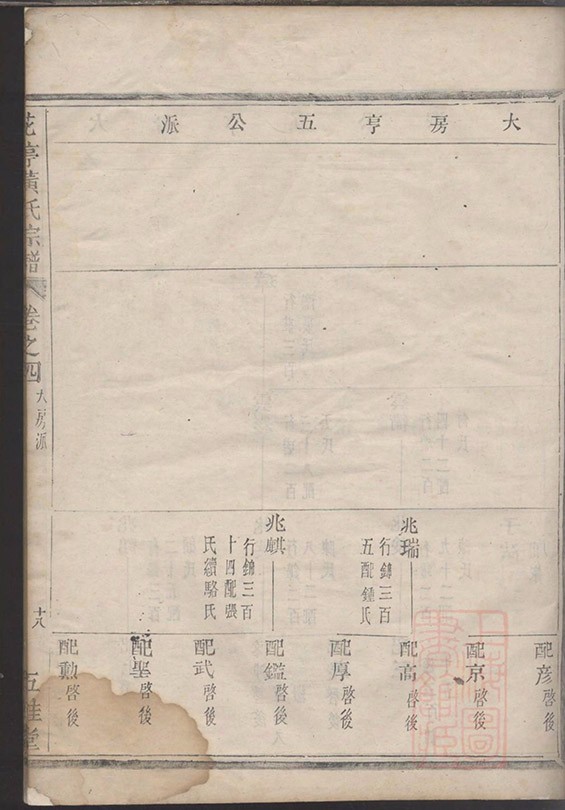 大房亨五公派
兆瑞
行錦三百
五配鍾氏
兆麒
行錦三百
十四配張
氏續駱氏
配彥啓後
配京啓後
配高啓後
配厚啓後
配鑑啓後
配武啓後
配聖啓後
配勳啓後
花亭黃氏宗譜
卷之四
大房派
十八
五桂堂